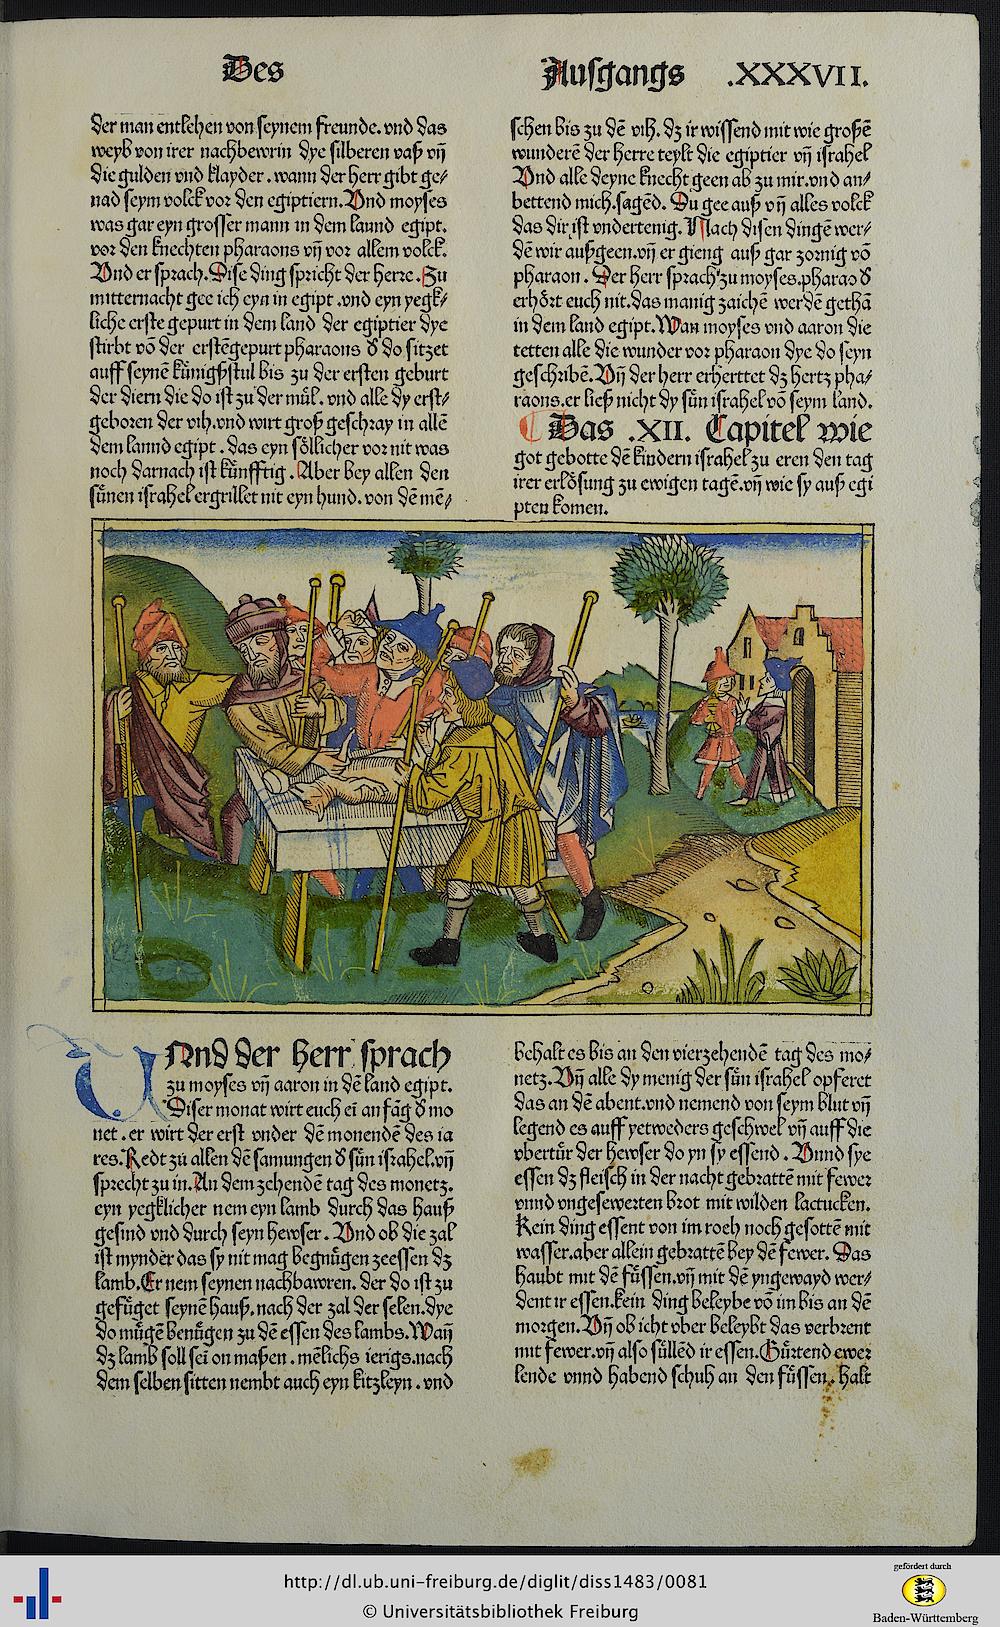 Des Ausgangs .XXXVII.
der man entlehen von seynem freunde. vnd das
weyb von irer nachbewrin dye silberen vaß vn̄
die gulden vnd klayder. wann der herr gibt ge⸗
nad seym volck vor den egiptiern. Vnd moyses
was gar eyn grosser mann in dem laund egipt.
vor den knechten pharaons vn̄ vor allem volck.
Vnd er sprach. Dise ding spricht der herre. Zu
mitternacht gee ich eyn in egipt. vnd eyn yegk⸗
liche erste gepurt in dem land der egiptier dye
stirbt vō der erstēgepurt pharaons d̕ do sitzet
auff seynē künigßstul bis zu der ersten geburt
der diern die do ist zu der mül. vnd alle dy erst⸗
geboren der vih. vnd wirt groß geschray in allē
dem lannd egipt. das eyn söllicher vor nit was
noch darnach ist künfftig. Aber bey allen den
sünen israhel ergrillet nit eyn hund. von dē mē⸗
schen bis zu dē vih. dz ir wissend mit wie großē
wunderē der herre teylt die egiptier vn̄ israhel
Vnd alle deyne knecht geen ab zu mir. vnd an⸗
bettend mich. sagēd. Du gee auß vn̄ alles volck
das dir ist vndertenig. Nach disen dingē wer⸗
dē wir außgeen. vn̄ er gieng auß gar zornig vō
pharaon. Der herr sprach zu moyses. pharao d̕
erhört euch nit. das manig zaichē werdē gethā
in dem land egipt. Wan moyses vnd aaron die
tetten alle die wunder vor pharaon dye do seyn
geschribē. Vn̄ der herr erherttet dz hertz pha⸗
raons. er ließ nicht dy sün israhel vō seym land.
Das .XII. Capitel wie
got gebotte dē kindern israhel zu eren den tag
irer erlösung zu ewigen tagē. vn̄ wie sy auß egi
pten komen.
VNnd der herr sprach
zu moyses vn̄ aaron in dē land egipt.
Diser monat wirt euch eī anfāg d̕ mo
net. er wirt der erst vnder dē monendē des ia
res. Redt zu allen dē samungen d̕ sün israhel. vn̄
sprecht zu in. An dem zehendē tag des monetz.
eyn yegklicher nem eyn lamb durch das hauß
gesind vnd durch seyn hewser. Vnd ob die zal
ist mynder das sy nit mag begnügen zeessen dz
lamb. Er nem seynen nachbawren. der do ist zu
gefüget seynē hauß. nach der zal der selen. dye
do mügē benügen zu dē essen des lambs. Wan̄
dz lamb soll seī on maßen. mēlichs ierigs. nach
dem selben sitten nembt auch eyn kitzleyn. vnd
behalt es bis an den vierzehendē tag des mo⸗
netz. Vn̄ alle dy menig der sün israhel opferet
das an dē abent. vnd nemend von seym blut vn̄
legend es auff yetweders geschwel vn̄ auff die
vbertür der hewser do yn sy essend. Vnnd sye
essen dz fleisch in der nacht gebrattē mit fewer
vnnd vngesewerten brot mit wilden lactucken.
Kein ding essent von im roeh noch gesottē mit
wasser. aber allein gebrattē bey dē fewer. Das
haubt mit dē füssen. vn̄ mit dē yngewayd wer⸗
dent ir essen. kein ding beleybe vō im bis an dē
morgen. Vn̄ ob icht vber beleybt das verbrent
mit fewer. vn̄ also süllēd ir essen. Gürtend ewer
lende vnnd habend schuh an den füssen. halt
http://dl.ub.uni-freiburg.de/diglit/diss1483/0081
© Universitätsbibliothek Freiburg
gefördert durch
Baden-Württemberg